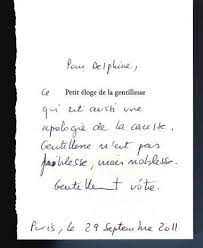 Pour Delphine,
ce Petit éloge de la gentillesse
qui est aussi une
apologie de la caresse.
Gentillesse n'est pas
faiblesse, mais noblesse.
Gentillement vôtre.
Paris, le 29 septembre 2011